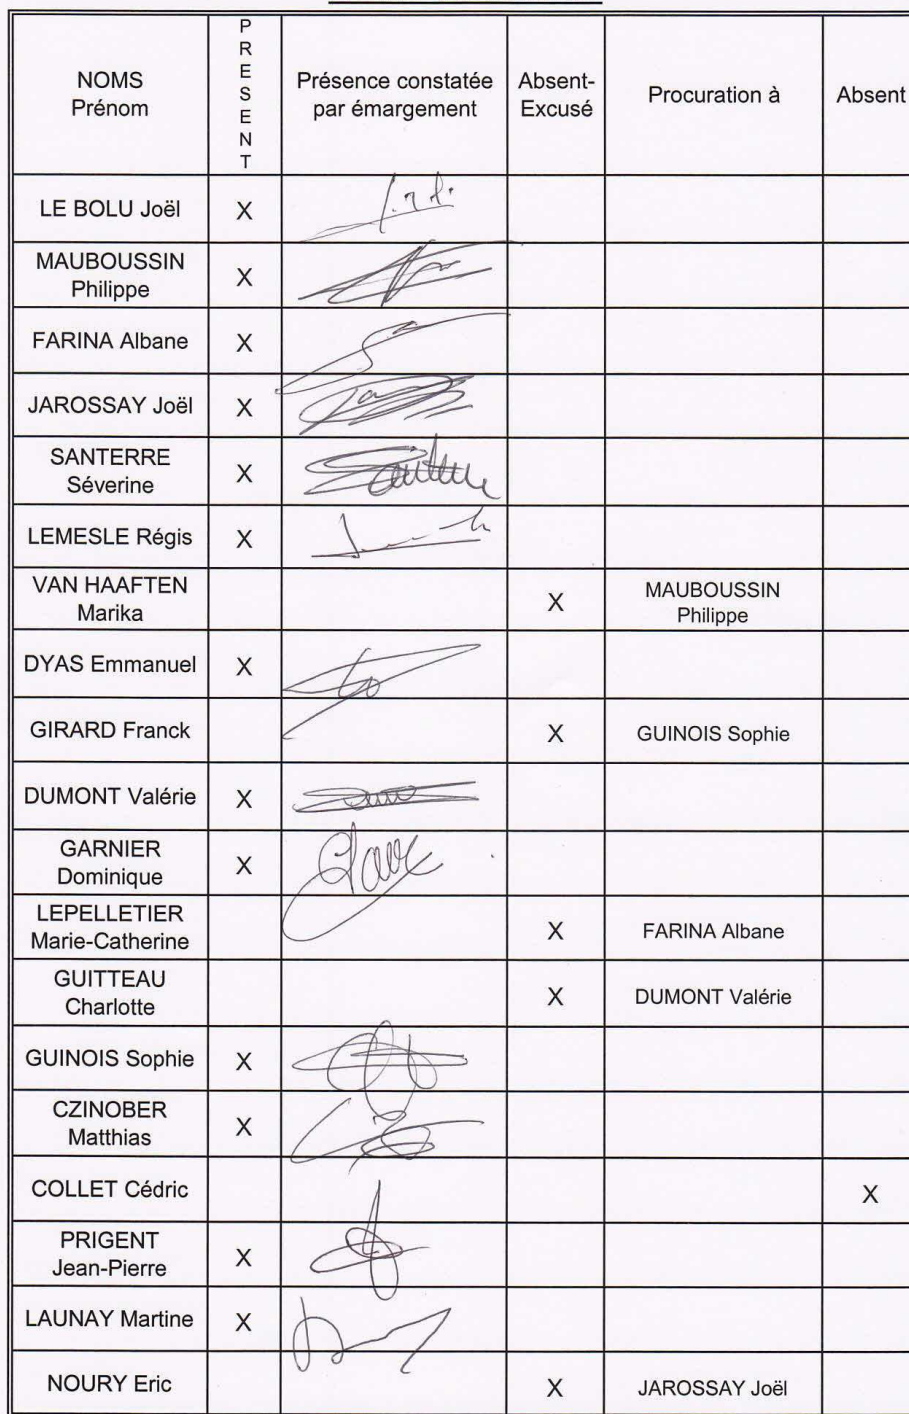 NOMS
Prénom
PRESENT
Présence constatée
par émargement
Absent-
Excusé
Procuration à
Absent
LE BOLU Joël X
MAUBOUSSIN
Philippe
X
FARINA Albane X
JAROSSAY Joël X
SANTERRE
Séverine
X
LEMESLE Régis X
VAN HAAFTEN
Marika
X
MAUBOUSSIN
Philippe
DYAS Emmanuel X
GIRARD Franck X GUINOIS Sophie
DUMONT Valérie X
GARNIER
Dominique
X
LEPELLETIER
Marie-Catherine
X FARINA Albane
GUITTEAU
Charlotte
X DUMONT Valérie
GUINOIS Sophie X
CZINOBER
Matthias
X
COLLET Cédric X
PRIGENT
Jean-Pierre
X
LAUNAY Martine X
NOURY Eric X JAROSSAY Joël